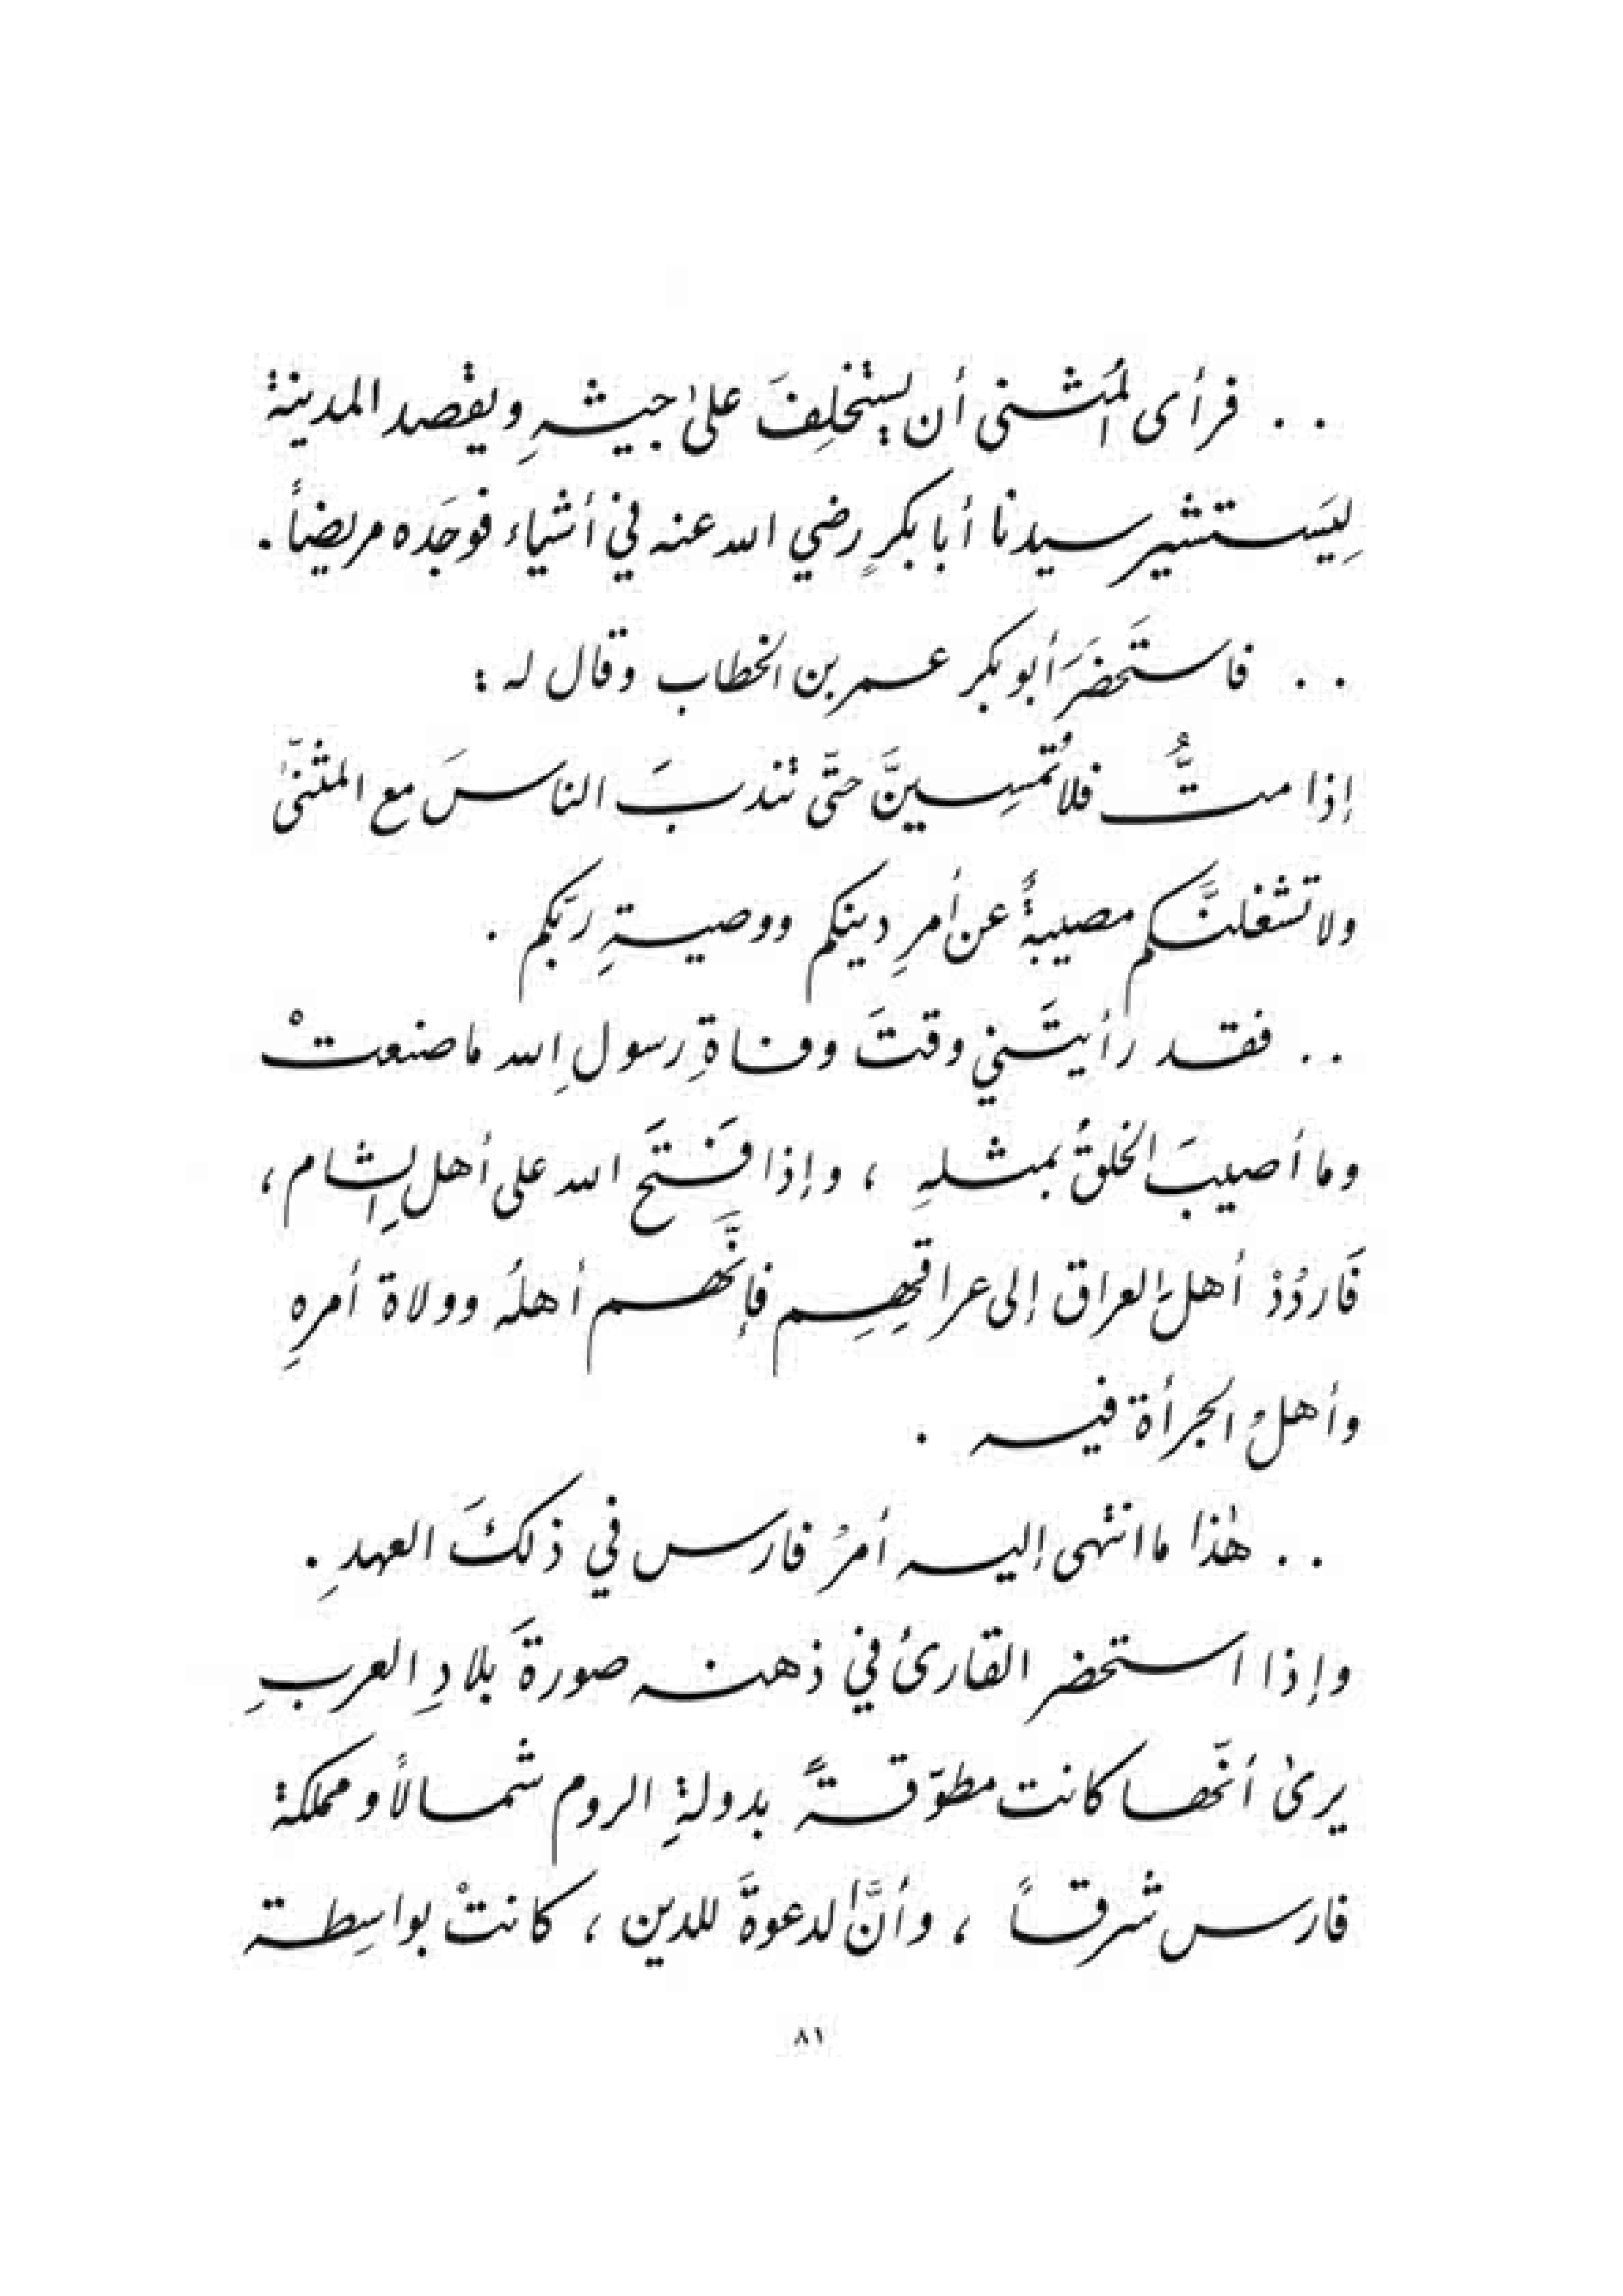 . . فرأى المُثنى أن يستخلِفَ علىٰ جيشهِ ويقصد المدينة
لِيَستشير سيدنا أبا بكرٍ رضي الله عنه في أشياء فوجَده مريضاً .
. . فاستَحضَرَ أبو بكر عمر بن الخطاب وقال له :
إذا متُّ فلا تُمسِينَّ حتّى تندبَ الناسَ مع المثنّىٰ
ولا تشغلنَّكم مصيبةٌ عن أمرِ دينكم ووصيةِ ربّكم .
. . فقد رأيتَني وقتَ وفاةِ رسولِ الله ما صنعتْ
وما أصيبَ الخلقُ بمثلهِ ، وإذا فَتَح الله على أهلِ الشام ،
فَاردُدْ أهلَ العراق إلى عراقهِم فإنَّهم أهلُه وولاة أمرهِ
وأهلُ الجرأة فيه .
. . هٰذا ما انتهى إليه أمرُ فارس في ذلكَ العهدِ .
وإذا استحضر القارئُ في ذهنه صورةَ بلادِ العربِ
يرىٰ أنّها كانت مطوّقةً بدولةِ الروم شمالاً ومملكة
فارس شرقاً ، وأنَّ الدعوةَ للدين ، كانتْ بواسِطة
٨١